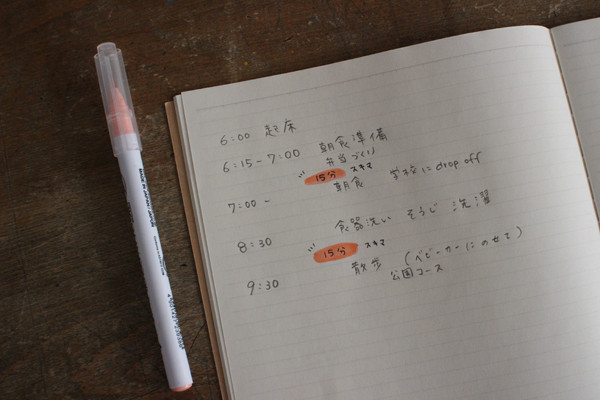 6:00 起床
6:15-7:00 朝食準備
弁当づくり
15分 スキマ
7:00- 朝食 学校にdrop off
8:30 食器洗い そうじ 洗濯
15分 スキマ
9:30 散歩 (ベビーカーにのせて)
公園コース